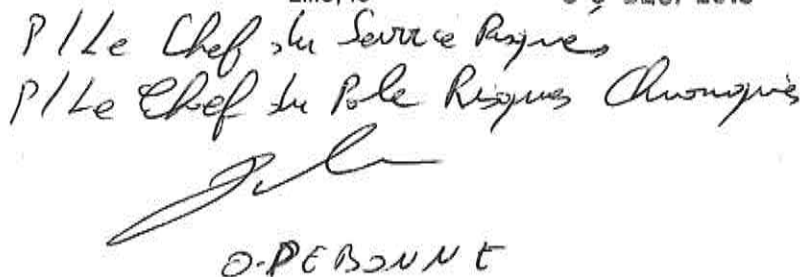 P/Le Chef du Service Risques
P/Le Chef du Pole Risques Chroniques
O. DEBONNE